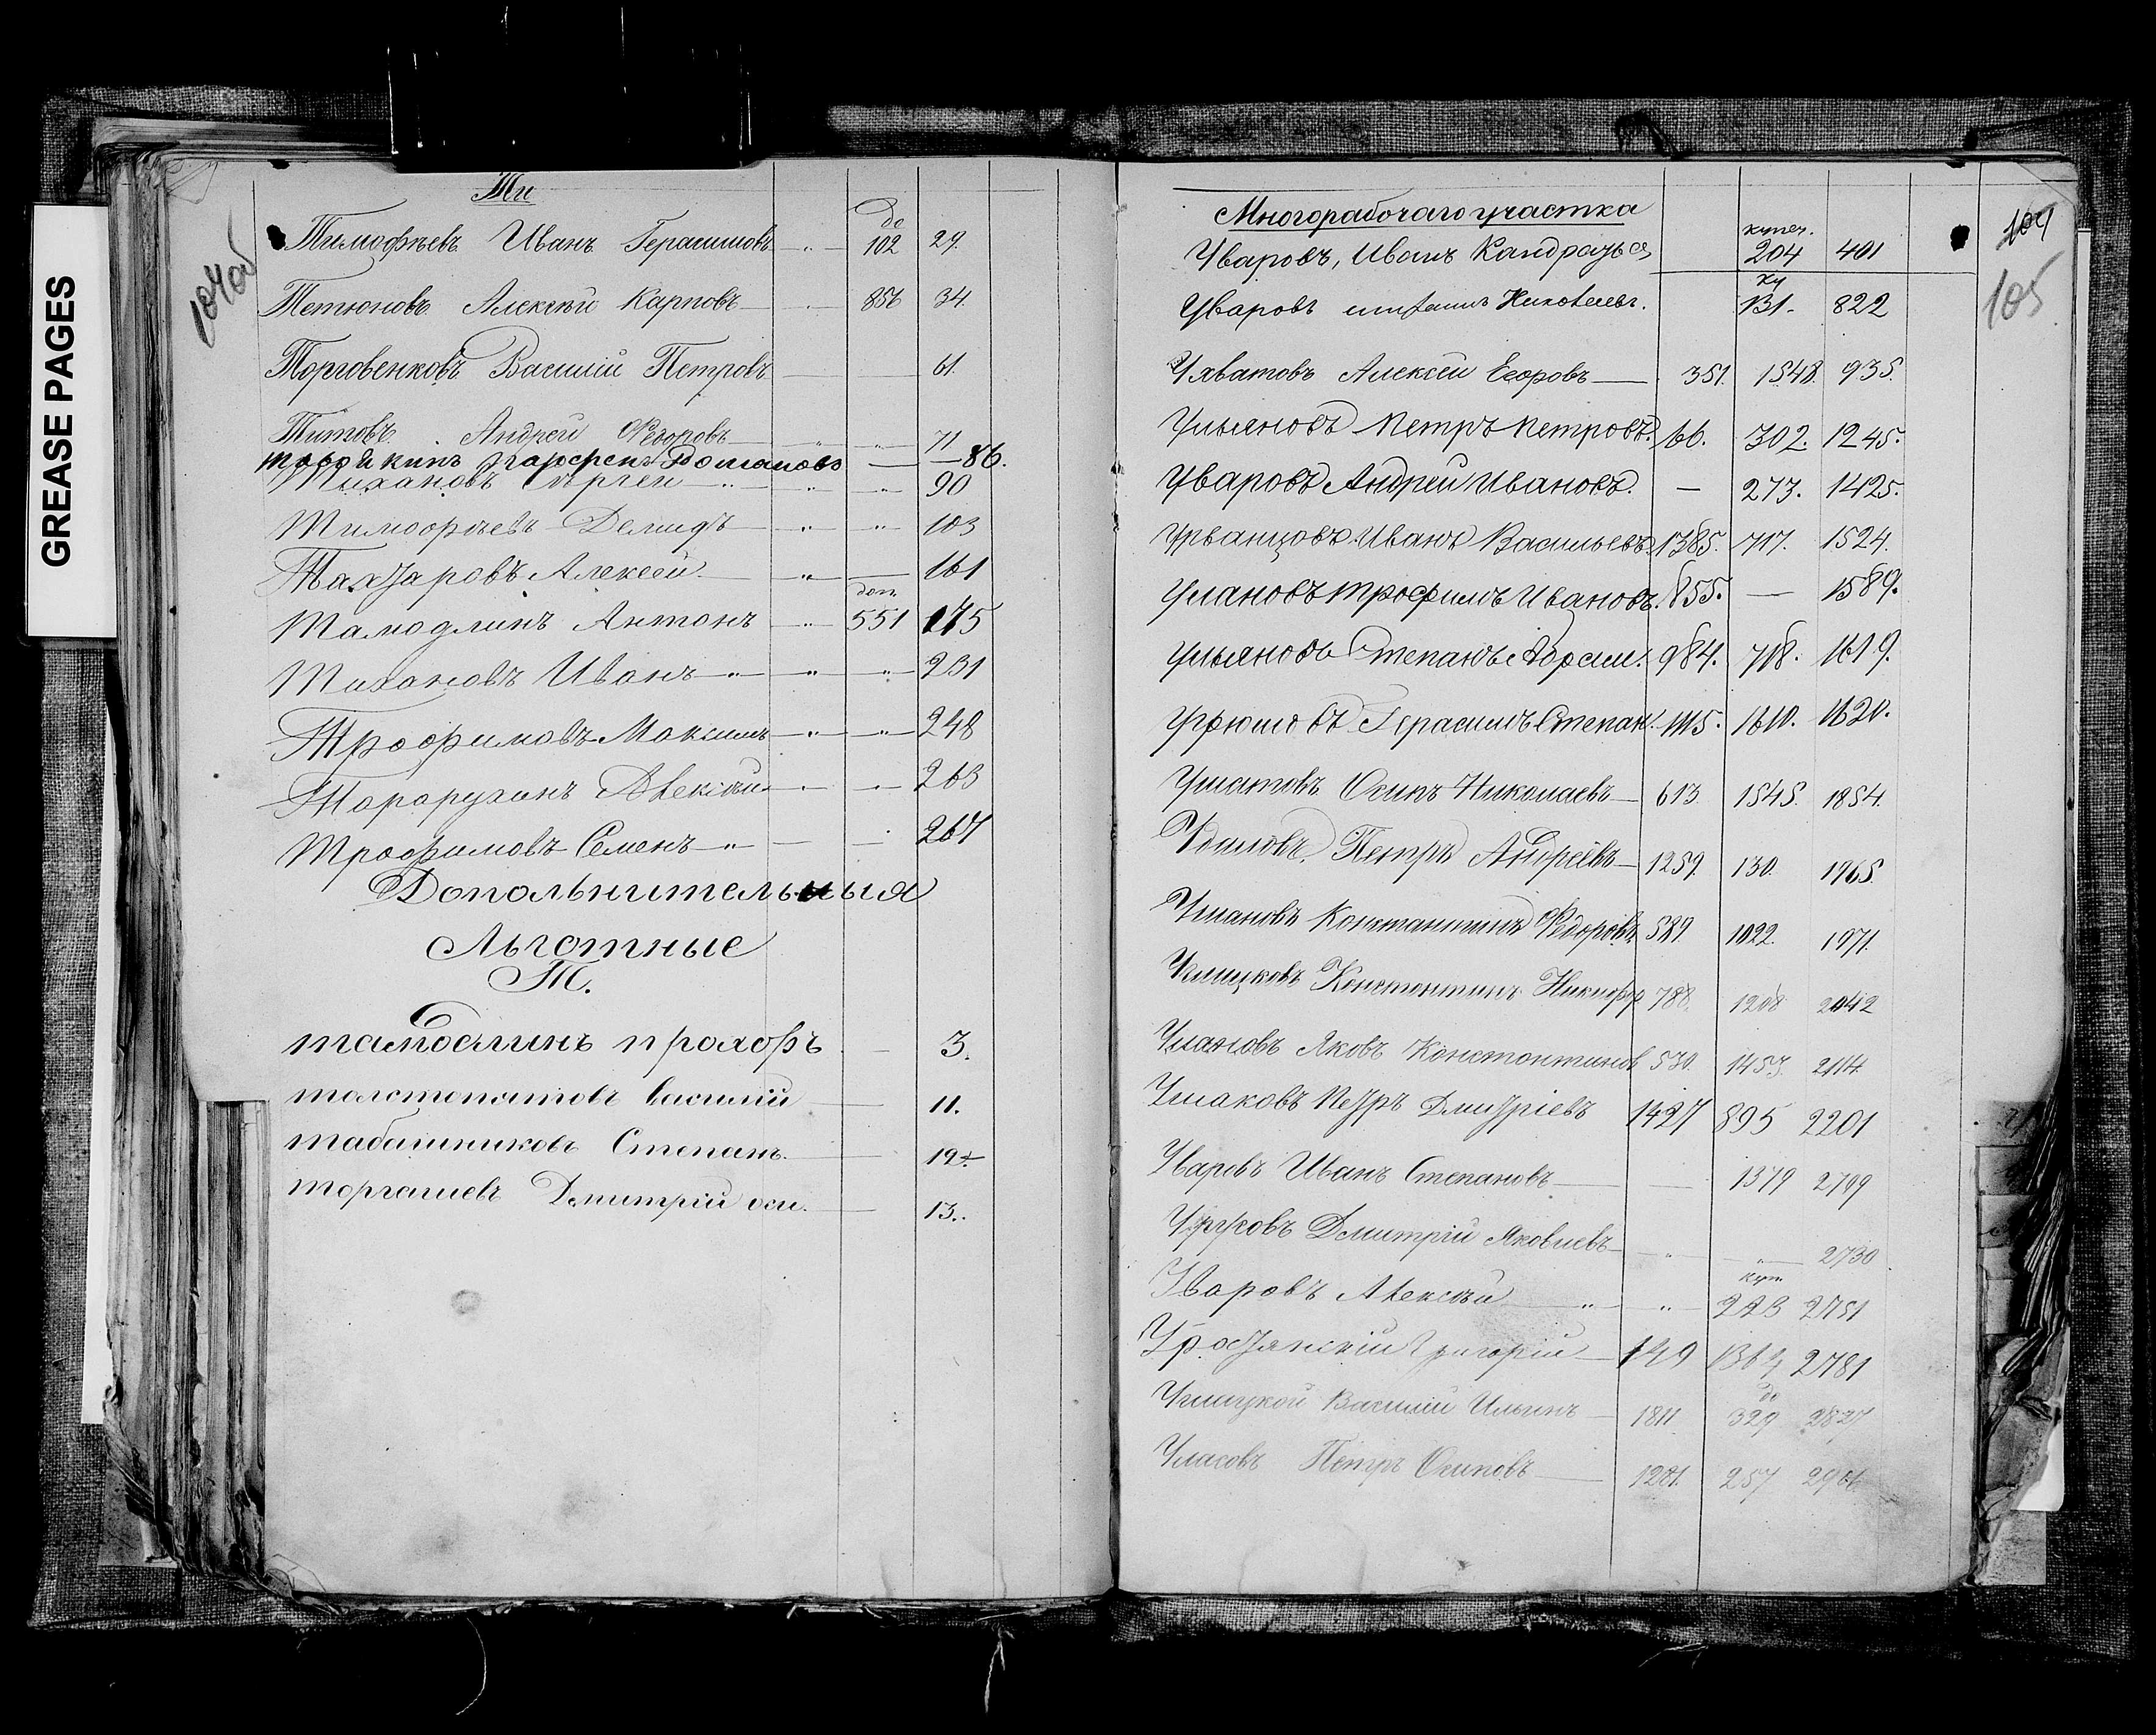 GREASE PAGES
104об
Ти
до
Тимофѣевъ Иванъ Герасимовъ — " — 102 29.
Тетюновъ Алексѣй Карповъ — 856 34.
Торговенковъ Василій Петровъ — 61.
Титовъ Андрей Федоровъ — " — " — 71
Парфенъ Романовъ — — 86.
Тихановъ Сергей — " — " — " — 90
Тимофѣевъ Демидъ — " — " — 103
Алексей — " — 161
доп.
Антонъ — " — 551 175
Тихоновъ Иванъ — " — " — " — 231
Трофимовъ Максимъ — " — " — 248
Алексѣй — " — " — 263
Трофимовъ Семенъ — " — — 267
Дополнительныя
Льготные
Т.
прохоръ — 3.
толстопятовъ василій — 11.
табашниковъ Степанъ. — 12
торгашевъ Дмитрій оси. — 13.
Многорабочаго участка
104
105
купеч.
Уваровъ, Иванъ 204 401
ку
Уваровъ 131. 822
Ухватовъ Алексей Егоровъ — 351. 1548. 935.
Ульяновъ Петръ Петровъ. 66. 302. 1245.
Уваровъ Андрей Ивановъ. — 273. 1425.
Урванцовъ Иванъ Васильевъ 1385. 717. 1524.
Улановъ Трофимъ Ивановъ. 855. — 1589.
Ульяновъ Степанъ 984. 718. 1619.
Угрюмовъ Герасимъ Степан. 1115. 1610. 1620.
Ушатовъ Осипъ Николаевъ — 613 1545. 1854.
Удаловъ Петръ Андреевъ — 1259. 130. 1965.
Улановъ Константинъ Федоровъ 589. 1022. 1971.
Углицковъ Константинъ Никифор 788. 1208 2042
Улановъ Яковъ Константиновъ 530. 1453. 2114.
Ушаковъ Петръ Дмитріевъ 1427 895 2201
Уваровъ Иванъ Степановъ — — 1379 2709
Дмитрій Яковлевъ — " — " — 2730
куп
Уваровъ Алексѣй — " — " — 223 2751
Григорій — 149 1364 2781
до
Углицкой Василій Ильинъ — 1811 329 2827
Уласовъ Петръ Осиповъ — 1281. 257 2906